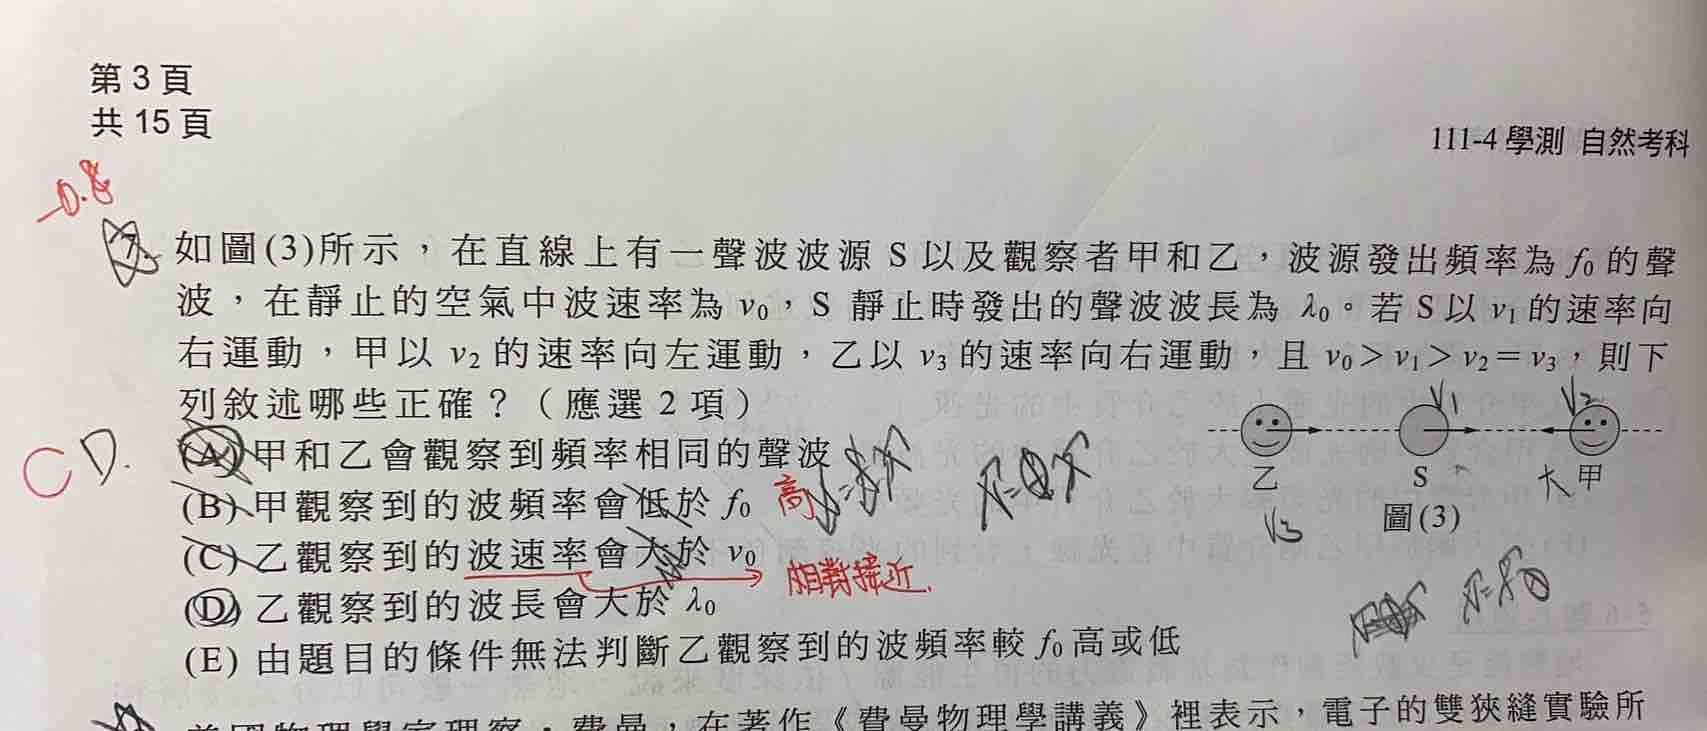 第 3 頁
共 15 頁
111-4 學測 自然考科
-0.8
7. 如圖(3)所示，在直線上有一聲波波源 S 以及觀察者甲和乙，波源發出頻率為 f₀ 的聲
波，在靜止的空氣中波速率為 v₀，S 靜止時發出的聲波波長為 λ₀。若 S 以 v₁ 的速率向
右運動，甲以 v₂ 的速率向左運動，乙以 v₃ 的速率向右運動，且 v₀＞v₁＞v₂＝v₃，則下
列敘述哪些正確？（應選 2 項）
CD.
(A) 甲和乙會觀察到頻率相同的聲波
(B) 甲觀察到的波頻率會低於 f₀ 高
(C) 乙觀察到的波速率會大於 v₀ 相對接近.
(D) 乙觀察到的波長會大於 λ₀
(E) 由題目的條件無法判斷乙觀察到的波頻率較 f₀ 高或低
V₁ V₂
乙 S 甲
V₃
圖(3)
，在著作《費曼物理學講義》裡表示，電子的雙狹縫實驗所